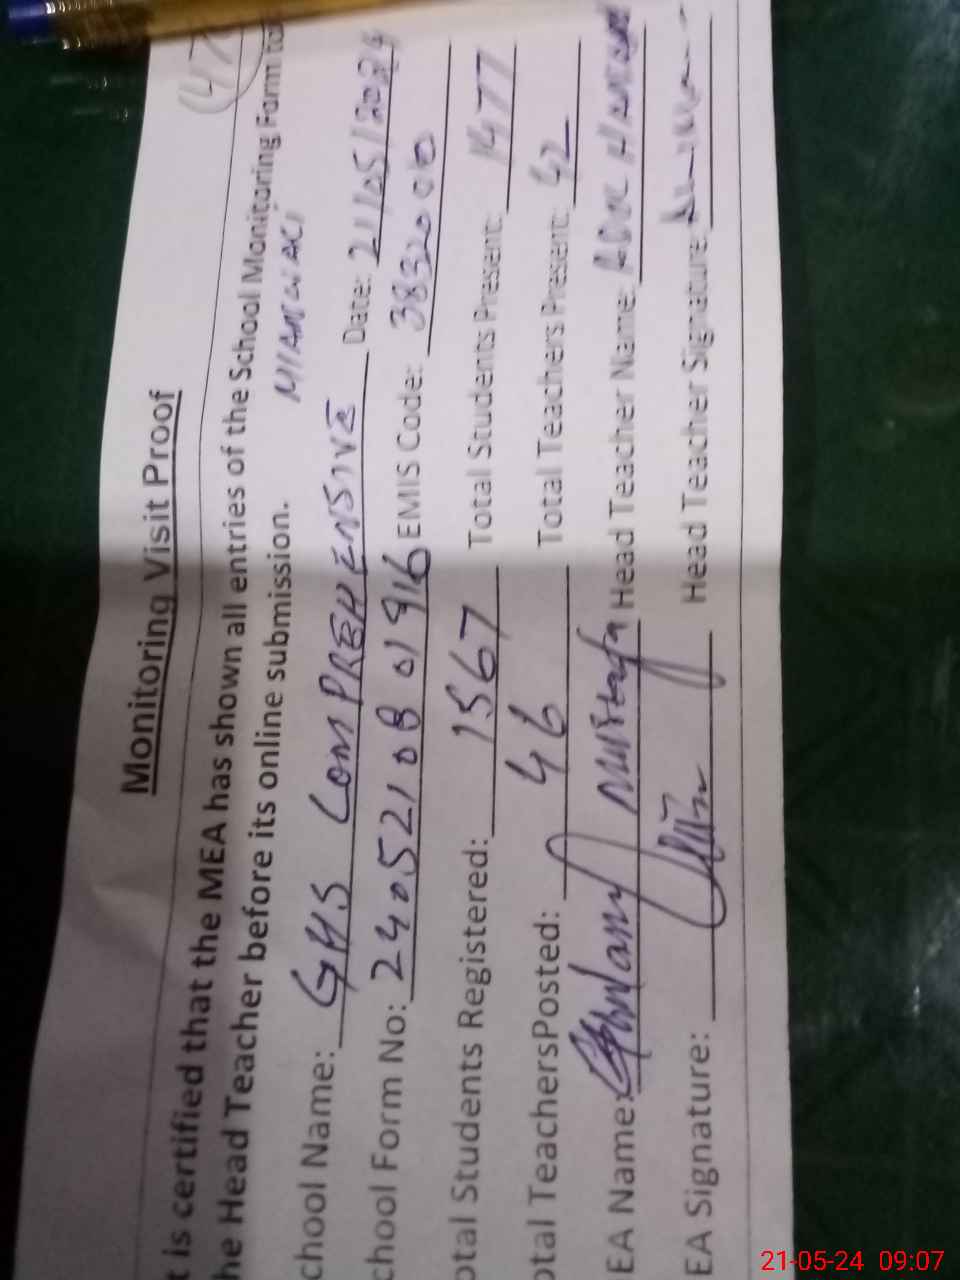 (47)
Monitoring Visit Proof
t is certified that the MEA has shown all entries of the School Monitoring Form to
he Head Teacher before its online submission. MIANWALI
chool Name: GHS COMPREHENSIVE Date: 21/05/2024
chool Form No: 2405210801916 EMIS Code: 38320010
otal Students Registered: 1567 Total Students Present: 1477
otal TeachersPosted: 46 Total Teachers Present: 42
EA Name: Ghulam Mustafa Head Teacher Name:
EA Signature: Head Teacher Signature:
21-05-24 09:07